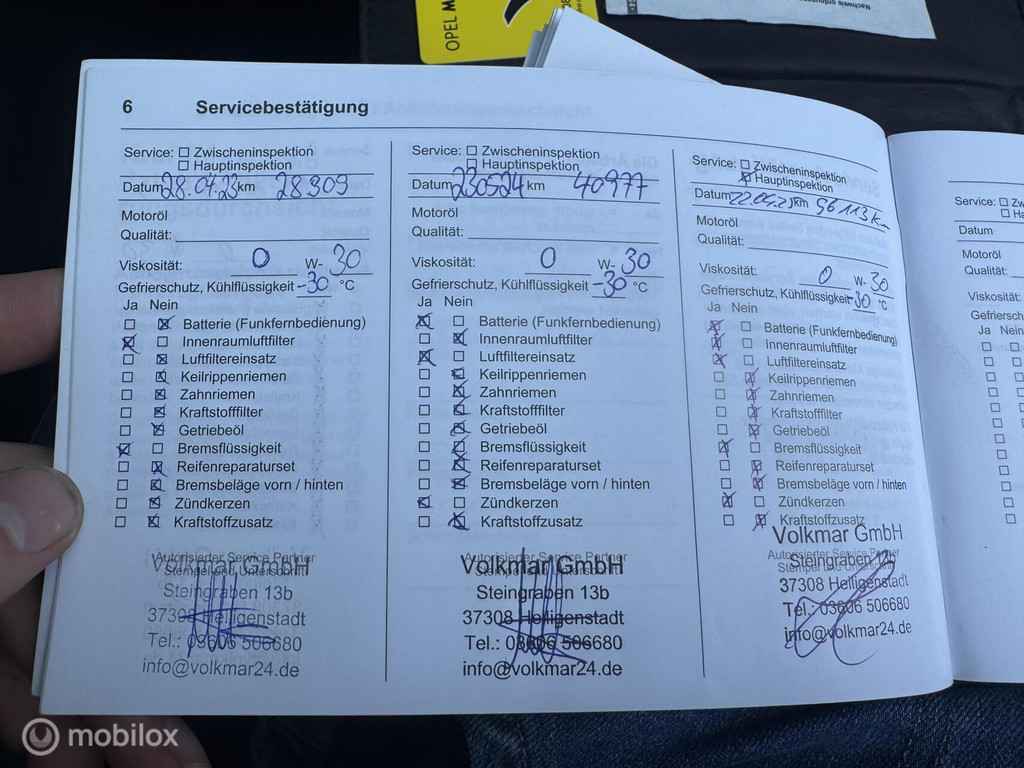 OPEL M
6 Servicebestätigung
Service: Zwischeninspektion
Hauptinspektion
Datum 28.04.23 km 28909
Motoröl
Qualität:
Viskosität: 0 W- 30
Gefrierschutz, Kühlflüssigkeit -30 °C
Ja Nein
Batterie (Funkfernbedienung)
Innenraumluftfilter
Luftfiltereinsatz
Keilrippenriemen
Zahnriemen
Kraftstofffilter
Getriebeöl
Bremsflüssigkeit
Reifenreparaturset
Bremsbeläge vorn / hinten
Zündkerzen
Kraftstoffzusatz
Autorisierter Service Partner
Volkmar GmbH
Stempel und Unterschrift
Steingraben 13b
37308 Heiligenstadt
Tel.: 03606 506680
info@volkmar24.de
Service: Zwischeninspektion
Hauptinspektion
Datum 230524 km 40977
Motoröl
Qualität:
Viskosität: 0 W- 30
Gefrierschutz, Kühlflüssigkeit -30 °C
Ja Nein
Batterie (Funkfernbedienung)
Innenraumluftfilter
Luftfiltereinsatz
Keilrippenriemen
Zahnriemen
Kraftstofffilter
Getriebeöl
Bremsflüssigkeit
Reifenreparaturset
Bremsbeläge vorn / hinten
Zündkerzen
Kraftstoffzusatz
Autorisierter Service Partner
Volkmar GmbH
Steingraben 13b
37308 Heiligenstadt
Tel.: 03606 506680
info@volkmar24.de
Service: Zwischeninspektion
Hauptinspektion
Datum km
Motoröl
Qualität:
Viskosität: 0 W- 30
Gefrierschutz, Kühlflüssigkeit -30 °C
Ja Nein
Batterie (Funkfernbedienung)
Innenraumluftfilter
Luftfiltereinsatz
Keilrippenriemen
Zahnriemen
Kraftstofffilter
Getriebeöl
Bremsflüssigkeit
Reifenreparaturset
Bremsbeläge vorn / hinten
Zündkerzen
Kraftstoffzusatz
Volkmar GmbH
Autorisierter Service Partner
Steingraben 13b
37308 Heiligenstadt
Tel.: 03606 506680
info@volkmar24.de
Service: Zw
Ha
Datum
Motoröl
Qualität:
Viskosität:
Gefriersch
Ja Nein
mobilox